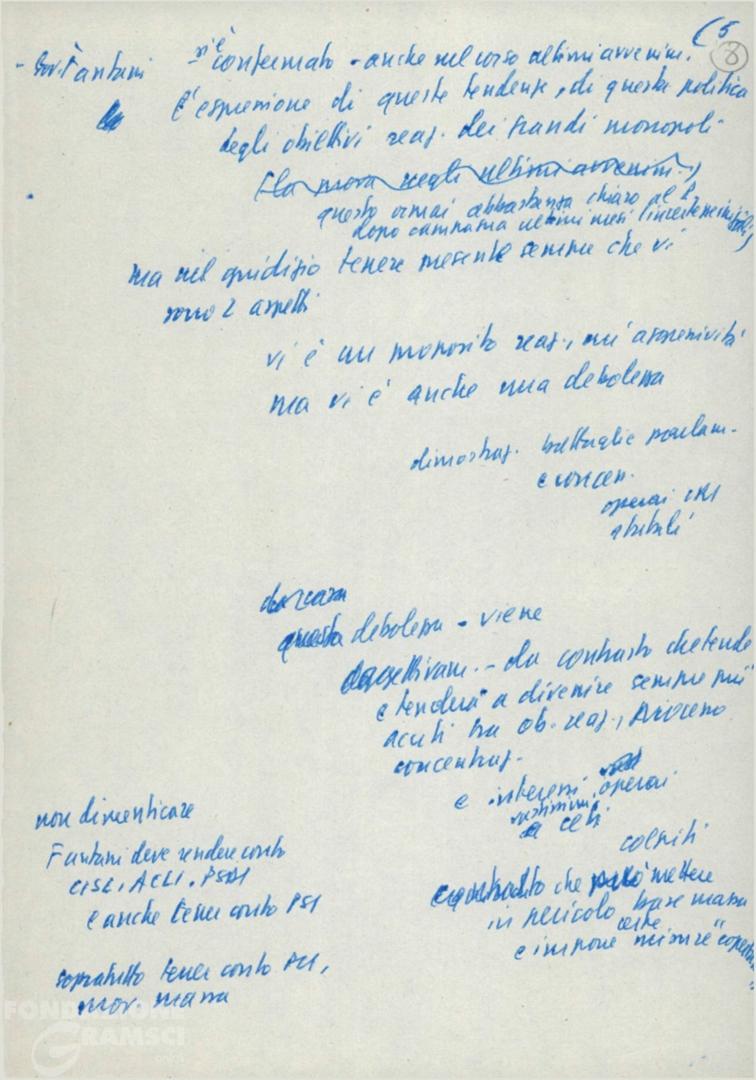 (5
8
- Gov. Fantani si è confermato - anche nel corso ultimi avvenim.
È espressione di queste tendenze, di questa politica
degli obiettivi reaz. dei grandi monopoli
(la prova negli ultimi avvenim.)
questo ormai abbastanza chiaro al P.
dopo campagna ultimi mesi
ma nel giudizio tenere presente sempre che vi
sono 2 aspetti
vi è un proposito reaz., più aggressività
ma vi è anche una debolezza
dimostraz. battaglie parlam.
e concess.
operai IRI
statali
da cosa
questa debolezza - viene
oggettivam. - da contrasto che tende
e tenderà a divenire sempre più
acuti tra ob. reaz., processo
concentraz.
e interessi operai
vastissimi
e ceti
colpiti
contrasto che può mettere
in pericolo base massa
e impone certe misure "copertura"
non dimenticare
Fantani deve rendere conto
CISL, ACLI, PSDI
e anche tener conto PSI
sopratutto tener conto PCI,
mov. massa
FONDAZIONE
GRAMSCI